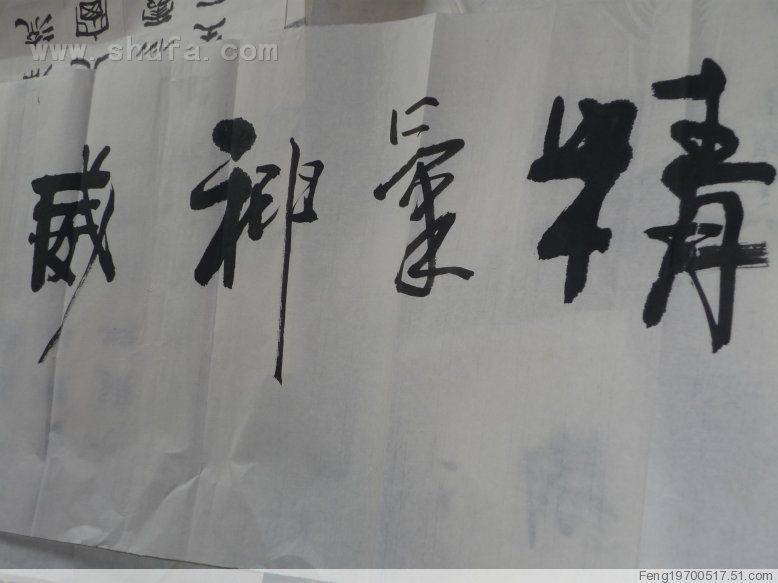 精氣神威
www.shufa.com
Feng19700517.51.com